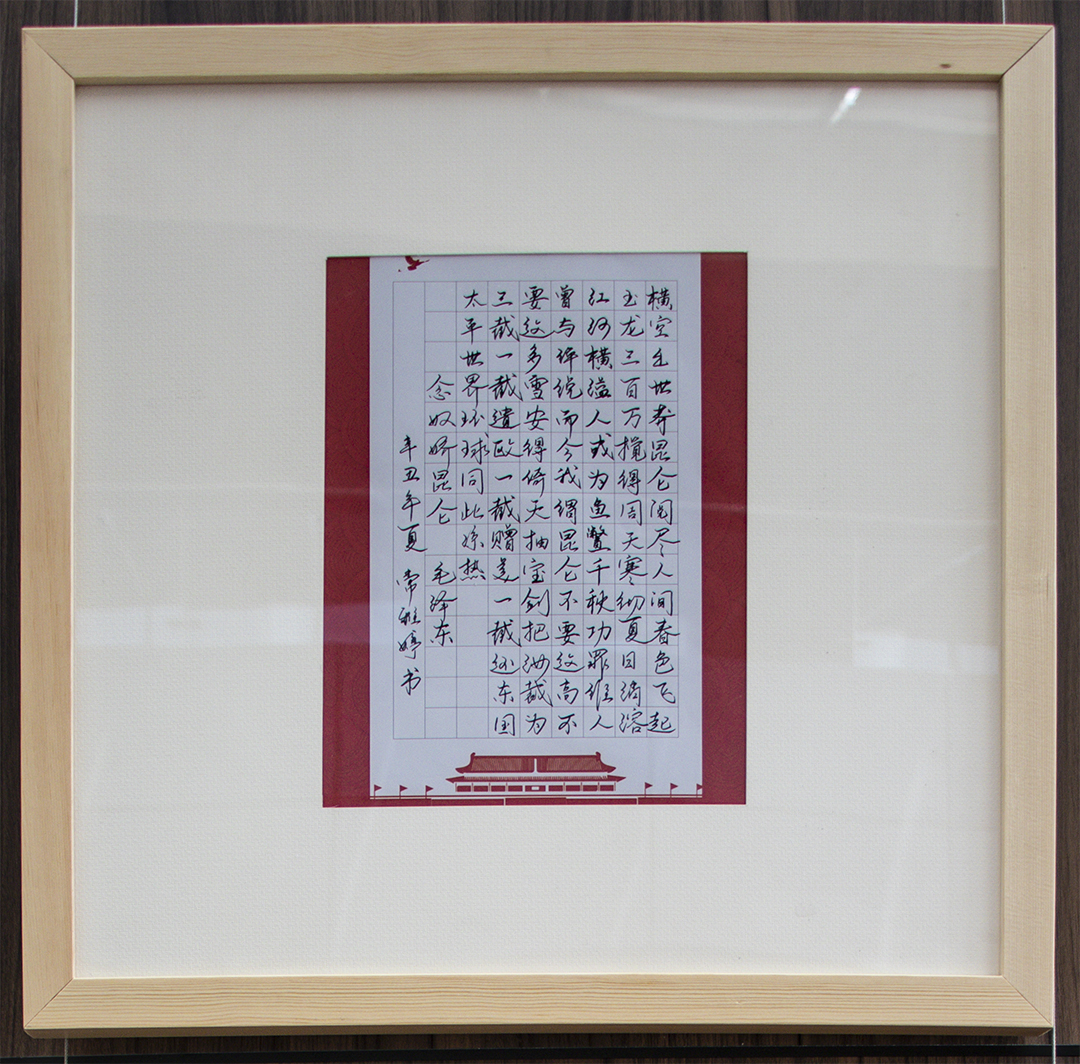 横空出世莽昆仑阅尽人间春色飞起
玉龙三百万搅得周天寒彻夏日消溶
江河横溢人或为鱼鳖千秋功罪谁人
曾与评说而今我谓昆仑不要这高不
要这多雪安得倚天抽宝剑把汝裁为
三截一截遗欧一截赠美一截还东国
太平世界环球同此凉热
念奴娇昆仑 毛泽东
辛丑年夏 常雅婷书